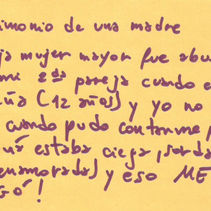 imonio de una madre
ja mujer mayor fue abu
mi 2ªda pareja cuando e
ña (12 años) y yo no
cuando pudo contarme
estaba ciega, sorda
enamorada) y eso ME
GÓ!